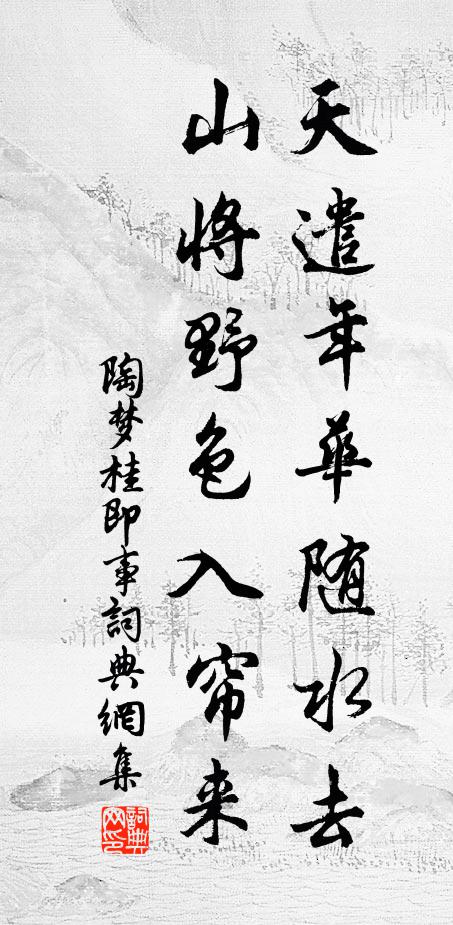 天遣年華随水去
山将野色入帘来
陶梦桂即事詞典網集
詞典网印